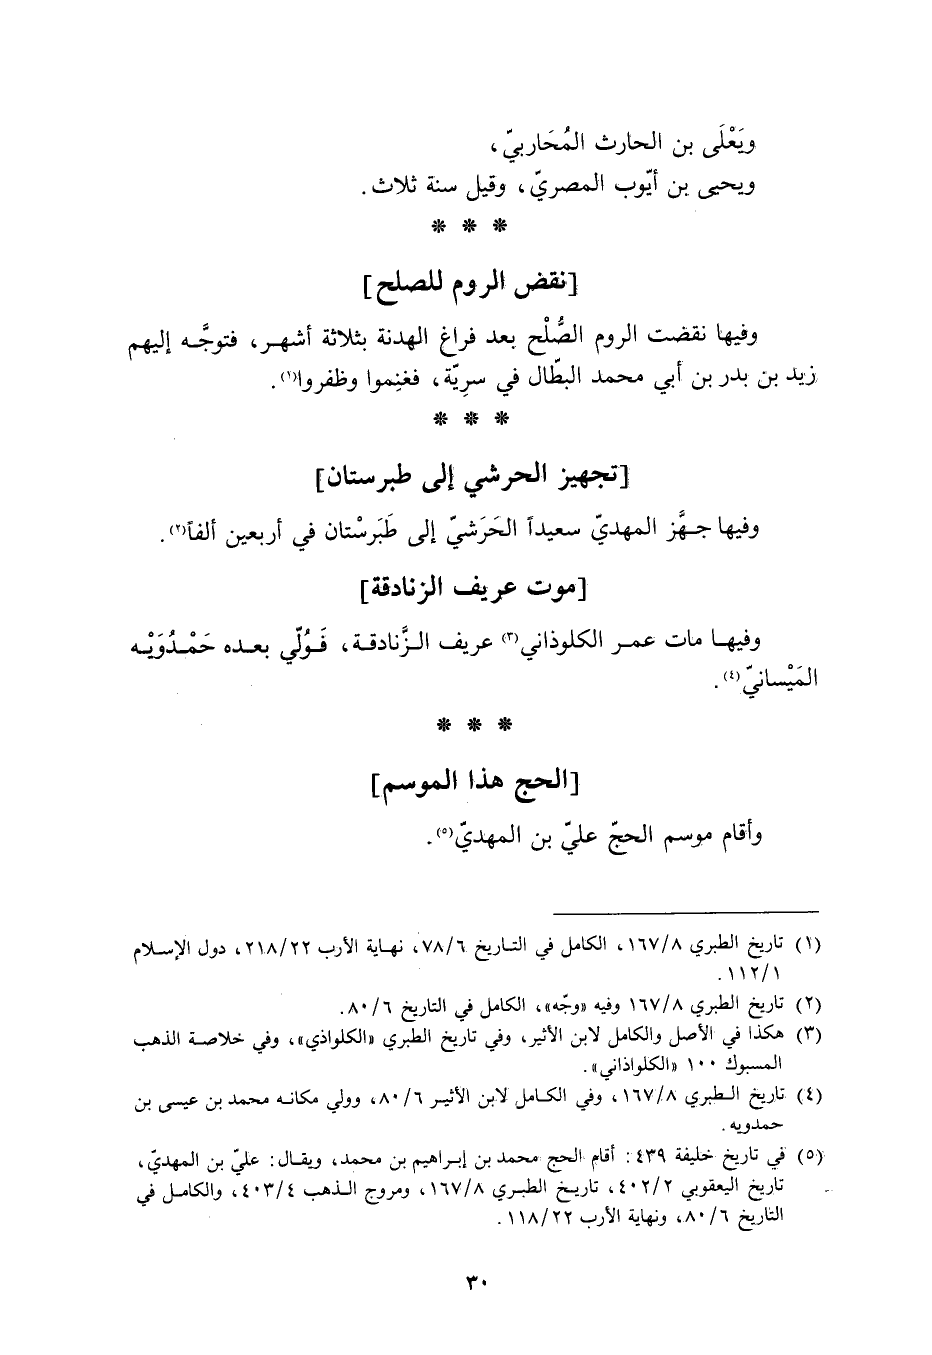 ويَعْلَى بن الحارث المُحَاربيّ،
ويحيى بن أيّوب المصريّ، وقيل سنة ثلاث.
* * *
[نقض الروم للصلح]
وفيها نقضت الروم الصُّلْح بعد فراغ الهدنة بثلاثة أشهر، فتوجَّه إليهم
زيد بن بدر بن أبي محمد البطّال في سرِيّة، فغنِموا وظفروا(١).
* * *
[تجهيز الحرشي إلى طبرستان]
وفيها جهَّز المهديّ سعيداً الحَرَشيّ إلى طَبَرِسْتان في أربعين ألفاً(٢).
[موت عريف الزنادقة]
وفيها مات عمر الكلوذاني(٣) عريف الزَّنادقة، فَوُلّي بعده حَمْدُوَيْه
المَيْسانيّ(٤).
* * *
[الحج هذا الموسم]
وأقام موسم الحجّ عليّ بن المهديّ(٥).
(١) تاريخ الطبري ١٦٧/٨، الكامل في التاريخ ٧٨/٦، نهاية الأرب ٢١٨/٢٢، دول الإسلام
١١٢/١.
(٢) تاريخ الطبري ١٦٧/٨ وفيه «وجّه»، الكامل في التاريخ ٨٠/٦.
(٣) هكذا في الأصل والكامل لابن الأثير، وفي تاريخ الطبري «الكلواذي»، وفي خلاصة الذهب
المسبوك ١٠٠ «الكلواذاني».
(٤) تاريخ الطبري ١٦٧/٨، وفي الكامل لابن الأثير ٨٠/٦، وولي مكانه محمد بن عيسى بن
حمدويه.
(٥) في تاريخ خليفة ٤٣٩: أقام الحج محمد بن إبراهيم بن محمد، ويقال: عليّ بن المهديّ،
تاريخ اليعقوبي ٤٠٢/٢، تاريخ الطبري ١٦٧/٨، ومروج الذهب ٤٠٣/٤، والكامل في
التاريخ ٨٠/٦، ونهاية الأرب ١١٨/٢٢.
٣٠